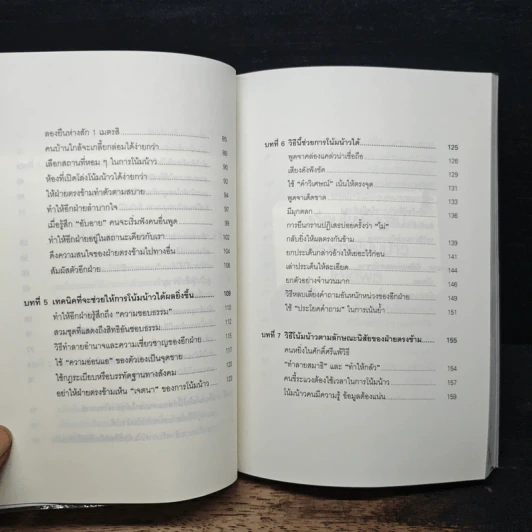 ลองยืนห่างสัก 1 เมตรสิ
คนบ้านใกล้จะเกลี้ยกล่อมได้ง่ายกว่า
เลือกสถานที่หอม ๆ ในการโน้มน้าว
ห้องที่เปิดโล่งโน้มน้าวได้ง่ายกว่า
ให้ฝ่ายตรงข้ามทำตัวตามสบาย
ทำให้อีกฝ่ายลำบากใจ
เมื่อรู้สึก "อับอาย" คนจะเริ่มฟังคนอื่นพูด
ทำให้อีกฝ่ายอยู่ในสถานะเดียวกับเรา
ดึงความสนใจของฝ่ายตรงข้ามไปทางอื่น
สัมผัสตัวอีกฝ่าย
บทที่ 5 เทคนิคที่จะช่วยให้การโน้มน้าวได้ผลยิ่งขึ้น 109
ทำให้อีกฝ่ายรู้สึกถึง "ความชอบธรรม"
สวมชุดที่แสดงถึงสิทธิอันชอบธรรม
วิธีทำลายอำนาจและความเชี่ยวชาญของอีกฝ่าย
ใช้ "ความอ่อนแอ" ของตัวเองเป็นจุดขาย
ใช้กฎระเบียบหรือบรรทัดฐานทางสังคม
อย่าให้ฝ่ายตรงข้ามเห็น "เจตนา" ของการโน้มน้าว
บทที่ 6 วิธีนี้ช่วยการโน้มน้าวได้ 125
พูดจาคล่องแคล่วน่าเชื่อถือ 126
เสียงดังฟังชัด 128
ใช้ "คำวิเศษณ์" เน้นให้ตรงจุด
พูดจาเด็ดขาด
มีมุกตลก
การยืนกรานปฏิเสธบ่อยครั้งว่า "ไม่" 136
กลับยิ่งให้ผลตรงกันข้าม
ยกประเด็นกล่าวอ้างให้เยอะไว้ก่อน 139
เล่าประเด็นให้ละเอียด 141
ยกตัวอย่างจำนวนมาก
วิธีหลบเลี่ยงคำถามอันหนักหน่วงของอีกฝ่าย
ใช้ "ประโยคคำถาม" ในการเน้นย้ำ
บทที่ 7 วิธีโน้มน้าวตามลักษณะนิสัยของฝ่ายตรงข้าม 155
คนหยิ่งในศักดิ์ศรีแพ้วิธี
"ทำลายสมาธิ" และ "ทำให้กลัว" 154
คนขี้ระแวงต้องใช้เวลาในการโน้มน้าว 157
โน้มน้าวคนมีความรู้ ข้อมูลต้องแน่น 159